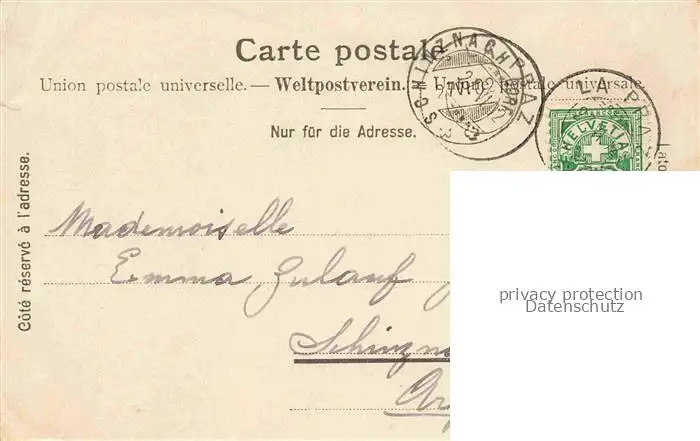 Carte postale
Union postale universelle. — Weltpostverein. — Unione postale universale.
Nur für die Adresse.
Côté réservé à l'adresse.
SCHINZNACH
LA PRAZ
HELVETIA
Mademoiselle
Emma Gulauf
Schinzn
privacy protection
Datenschutz